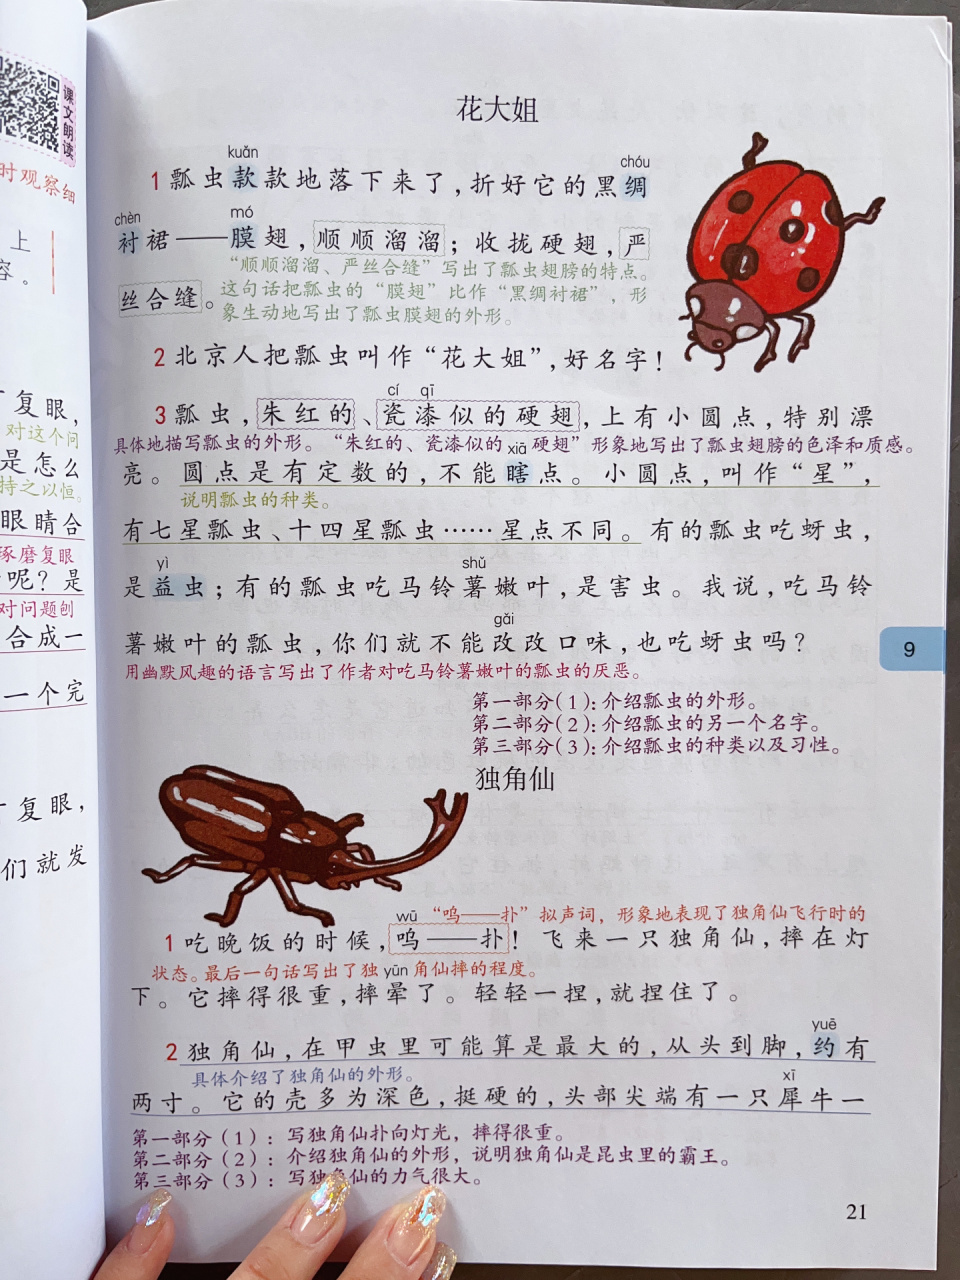 课文朗读
时观察细
上
容。
复眼，
对这个问
是怎么
持之以恒。
眼睛合
琢磨复眼
呢？是
对问题刨
合成一
一个完
复眼，
们就发
花大姐
kuǎn chóu
1 瓢虫款款地落下来了，折好它的黑绸
chèn mó
衬裙——膜翅，顺顺溜溜；收拢硬翅，严
“顺顺溜溜、严丝合缝”写出了瓢虫翅膀的特点。
丝合缝。这句话把瓢虫的“膜翅”比作“黑绸衬裙”，形
象生动地写出了瓢虫膜翅的外形。
2 北京人把瓢虫叫作“花大姐”，好名字！
cí qī
3 瓢虫，朱红的、瓷漆似的硬翅，上有小圆点，特别漂
具体地描写瓢虫的外形。“朱红的、瓷漆似的硬翅”形象地写出了瓢虫翅膀的色泽和质感。
xiā
亮。圆点是有定数的，不能瞎点。小圆点，叫作“星”，
说明瓢虫的种类。
有七星瓢虫、十四星瓢虫……星点不同。有的瓢虫吃蚜虫，
yì shǔ
是益虫；有的瓢虫吃马铃薯嫩叶，是害虫。我说，吃马铃
gǎi
薯嫩叶的瓢虫，你们就不能改改口味，也吃蚜虫吗？
用幽默风趣的语言写出了作者对吃马铃薯嫩叶的瓢虫的厌恶。
9
第一部分（1）：介绍瓢虫的外形。
第二部分（2）：介绍瓢虫的另一个名字。
第三部分（3）：介绍瓢虫的种类以及习性。
独角仙
wū “呜——扑”拟声词，形象地表现了独角仙飞行时的
1 吃晚饭的时候，呜——扑！飞来一只独角仙，摔在灯
状态。最后一句话写出了独角仙摔的程度。
yūn
下。它摔得很重，摔晕了。轻轻一捏，就捏住了。
yuē
2 独角仙，在甲虫里可能算是最大的，从头到脚，约有
具体介绍了独角仙的外形。
xī
两寸。它的壳多为深色，挺硬的，头部尖端有一只犀牛一
第一部分（1）：写独角仙扑向灯光，摔得很重。
第二部分（2）：介绍独角仙的外形，说明独角仙是昆虫里的霸王。
第三部分（3）：写独角仙的力气很大。
21